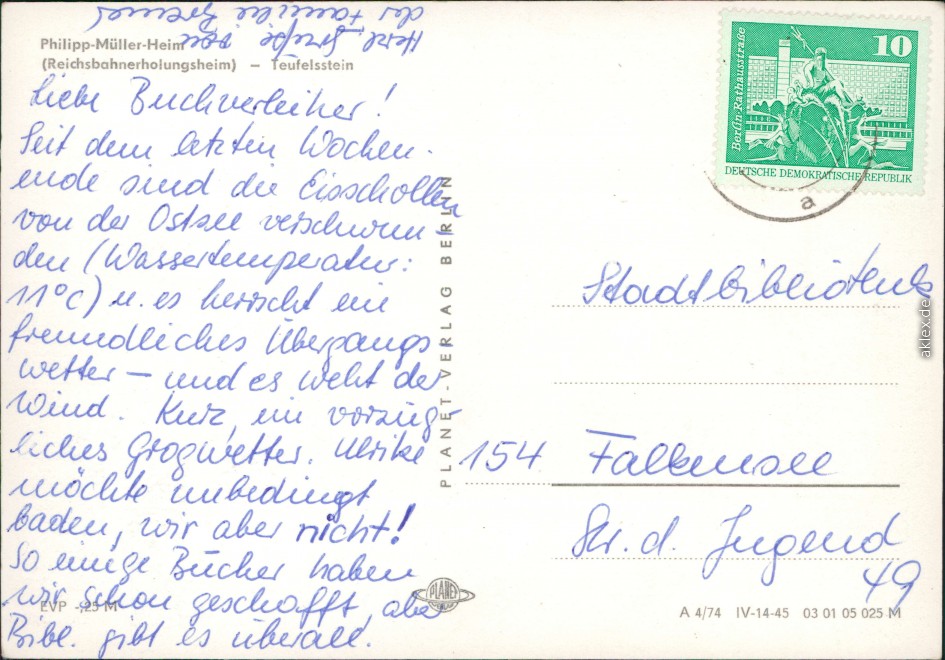 Philipp-Müller-Heim
(Reichsbahnerholungsheim) – Teufelsstein
Liebe Buchverleiher!
Seit dem letzten Wochen-
ende sind die Eisschollen
von der Ostsee verschwun-
den (Wassertemperatur:
11°C) u. es herrscht ein
freundliches Übergangs
wetter – und es weht der
Wind. Kurz, ein vorzüg-
liches Grogwetter. Ulrike
möchte unbedingt
baden, wir aber nicht!
So einige Bücher haben
wir schon geschafft, aber
Bibl. gibt es überall.
Herzl. Grüße von
der Familie
EVP -,25 M
PLANET-VERLAG BERLIN
PLANET
10
Berlin·Rathausstraße
DEUTSCHE DEMOKRATISCHE REPUBLIK
a
Stadtbibliothek
154 Falkensee
Str. d. Jugend
49
A 4/74 IV-14-45 03 01 05 025 M
aklex.de